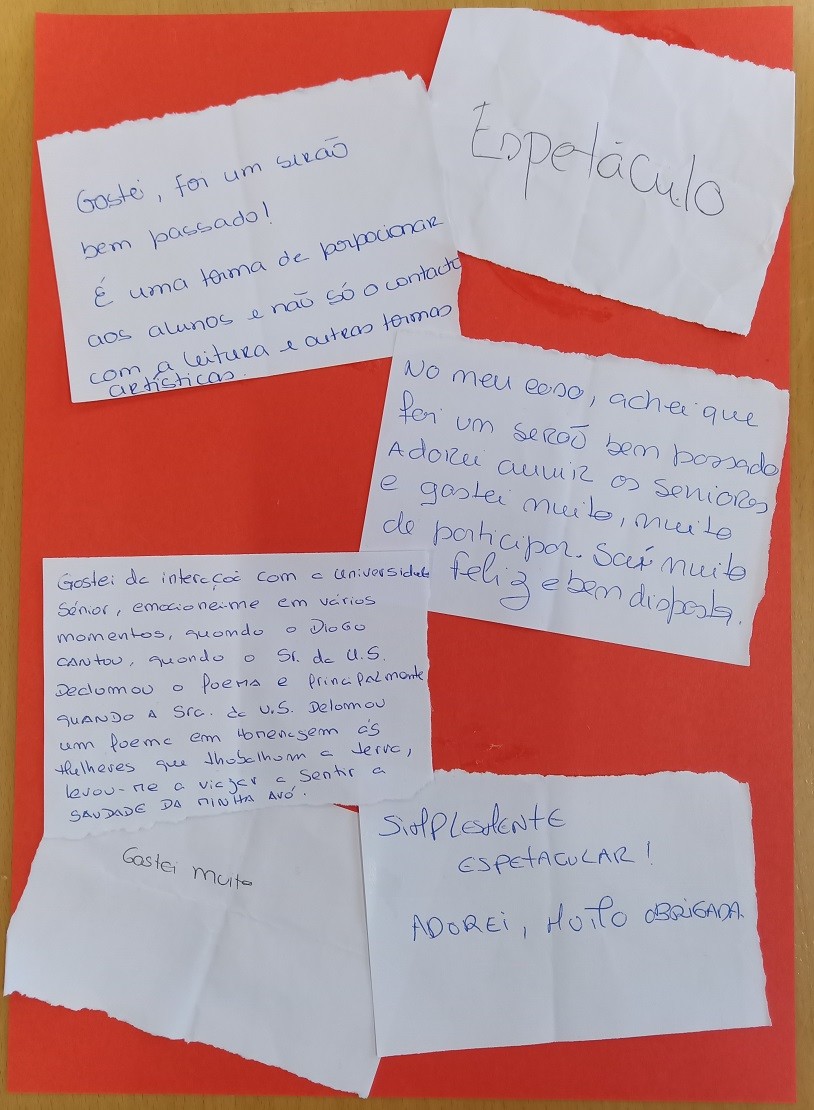 Gostei, foi um serão
bem passado!
É uma forma de porpocionar
aos alunos e não só o contacto
com a leitura e outras formas
artísticas.
Espetáculo
No meu caso, achei que
foi um serão bem passado
Adorei ouvir os seniores
e gostei muito, muito
de participar. Saí muito
feliz e bem disposta.
Gostei da interação com a universidade
Sénior, emocionei-me em vários
momentos, quando o Diogo
CANTOU, quando o Sr. da U.S.
Declamou o Poema e principalmente
QUANDO A Sra. da U.S. Delomou
um Poema em Homenagem às
Mulheres que trabalham a terra,
levou-me a viajar a Sentir a
SAUDADE DA MINHA AVÓ.
SIMPLESMENTE
ESPETACULAR!
ADOREI, MUITO OBRIGADA.
Gostei muito